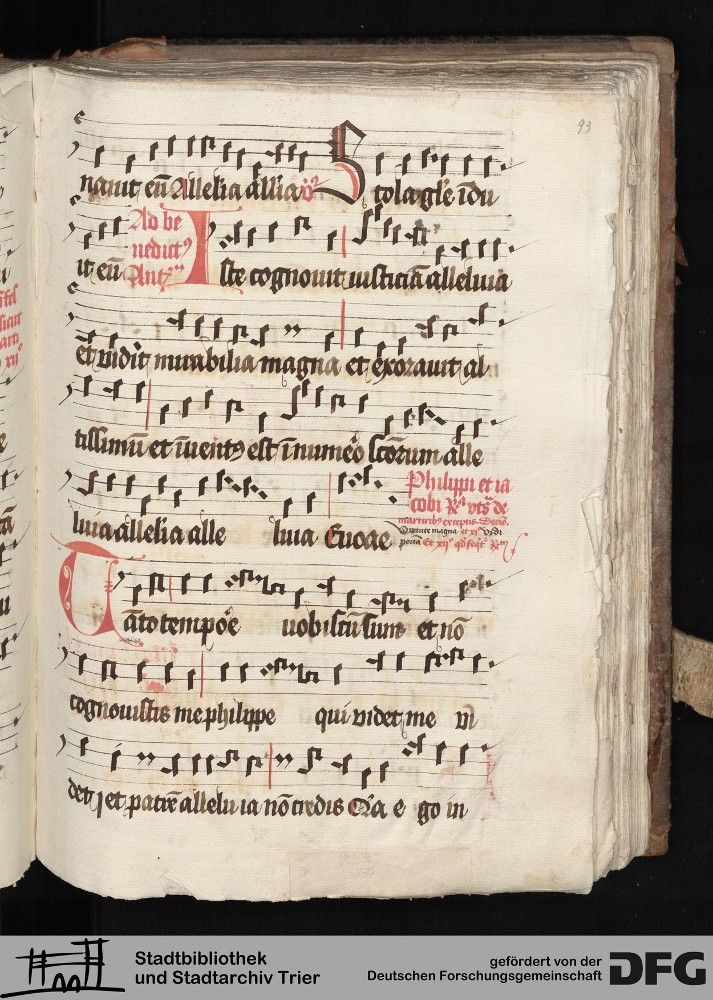 93
nauit eū Allelia allia V̊ Stola gl̄e īdu
it eū Ad be
nedictꝰ
Ant
Iste cognouit iusticiā alleluia
et vidit mirabilia magna et exorauit al
tissimū et īuentꝰ est ī numēo sc̄orum alle
luia allelia alle luia Euoae
Philippi et ia
cobi
Tāto tempoē uobiscū sum et nō
cognouistis me philippe qui videt me vi
det et patrē alleluia nō credis Q̄a ego in
Stadtbibliothek
und Stadtarchiv Trier
gefördert von der
Deutschen Forschungsgemeinschaft
DFG